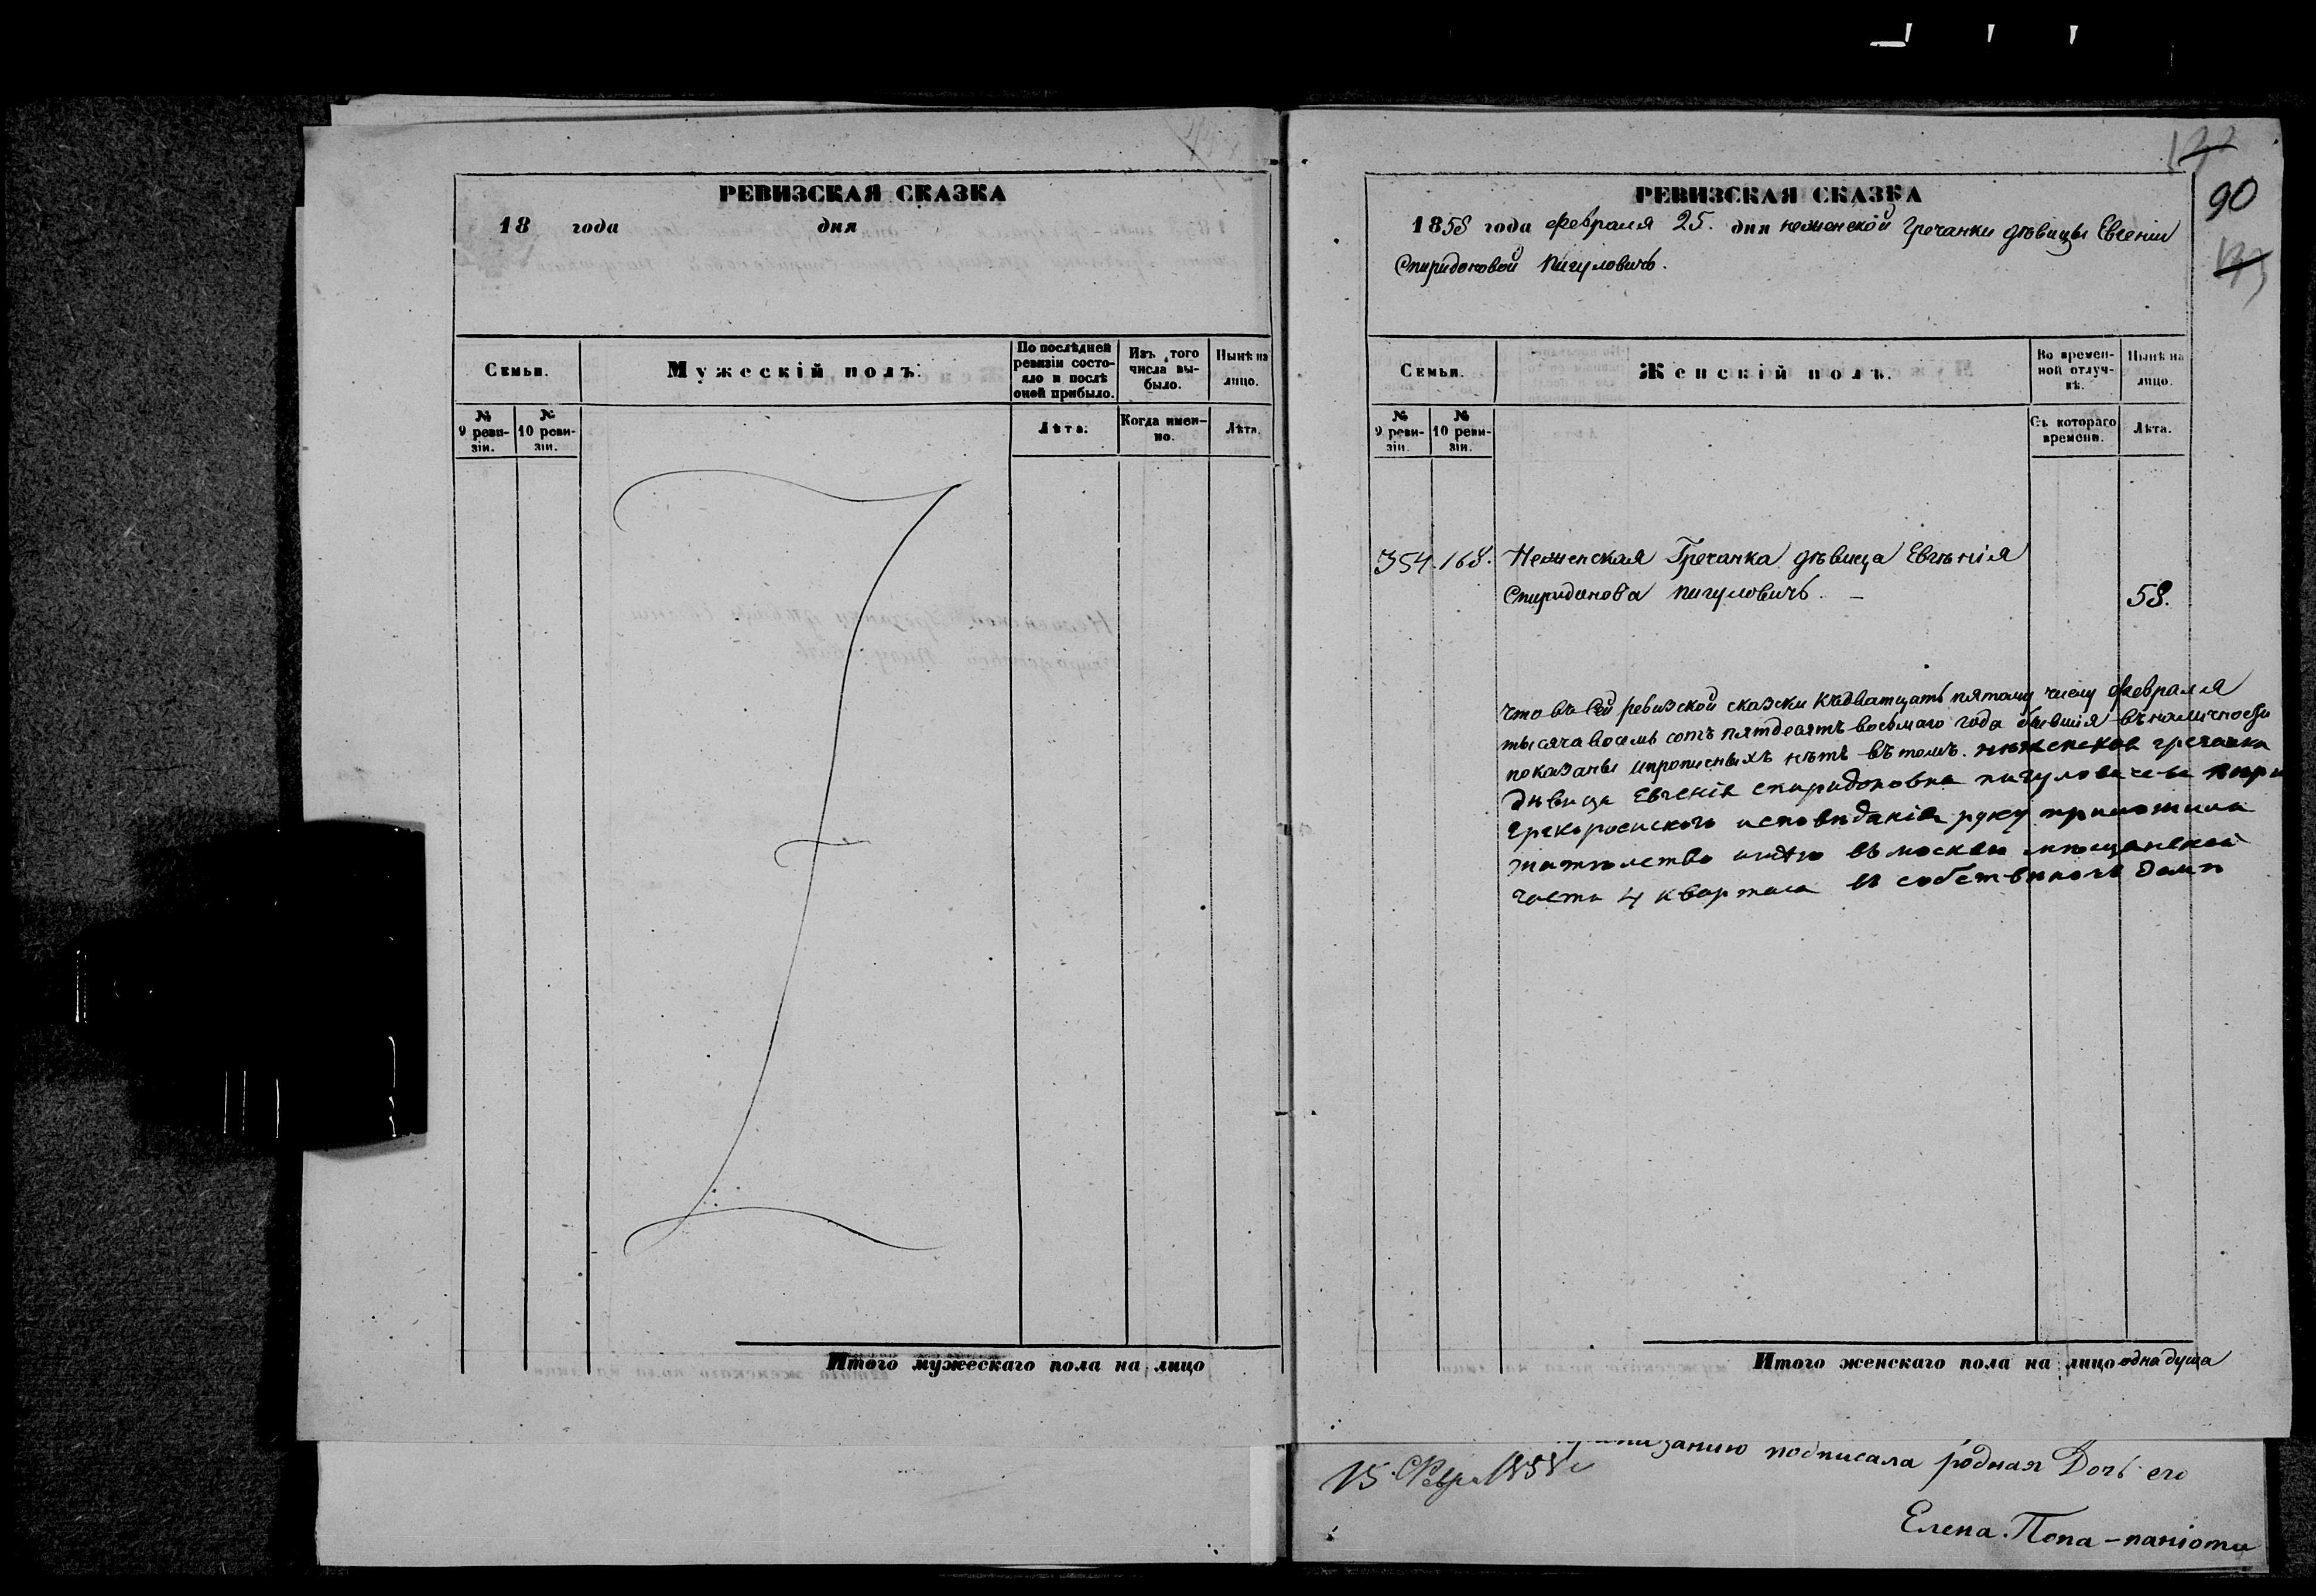 РЕВИЗСКАЯ СКАЗКА
18 года дня
Семьи.
Мужескій полъ.
По послѣдней ревизіи состояло и послѣ оной прибыло.
Изъ того числа выбыло.
Нынѣ на лицо.
№ 9 ревизіи.
№ 10 ревизіи.
Лѣта.
Когда именно.
Лѣта.
Итого мужескаго пола на лицо
90
РЕВИЗСКАЯ СКАЗКА
1858 года февраля 25. дня неженской гречанки дѣвицы Евгеніи
Спиридоновой Пигуловичь.
Семьи.
Женскій полъ.
Во временной отлучкѣ.
Нынѣ на лицо.
№ 9 ревизіи.
№ 10 ревизіи.
Съ котораго времени.
Лѣта.
354. 168. Неженская Гречанка дѣвица Евгѣнія
Спиридонова Пигуловичь. — 58.
Что въ сей ревизской сказки къ дватцать пятому числу февраля
тысяча восемь сотъ пятдесятъ восьмаго года бывшія въ наличности
показаны и прописныхъ нѣтъ въ томъ. нѣженская гречанка
дѣвица Евгенія спиридоновна пигуловичь
грекоросискаго исповѣданія руку приложила
жительство имѣю въ москвѣ мѣщанской
части 4 квартала въ собственомъ доми
Итого женскаго пола на лицо одна душа
подписала родная Дочь его
15 Февр 1858
Елена Попа-паніоти